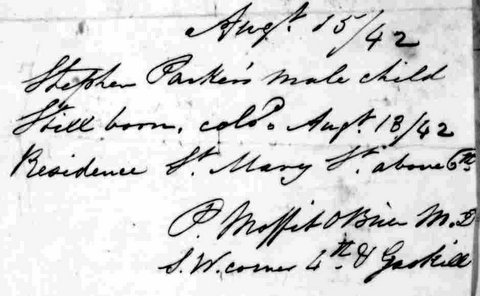 Augt. 15/42
Stephen Parker's male child
Still born, cold. Augt. 13/42
Residence St. Mary St. above 6th
P. Moffit OBrien M.D
S.W. corner 4th & Gaskill